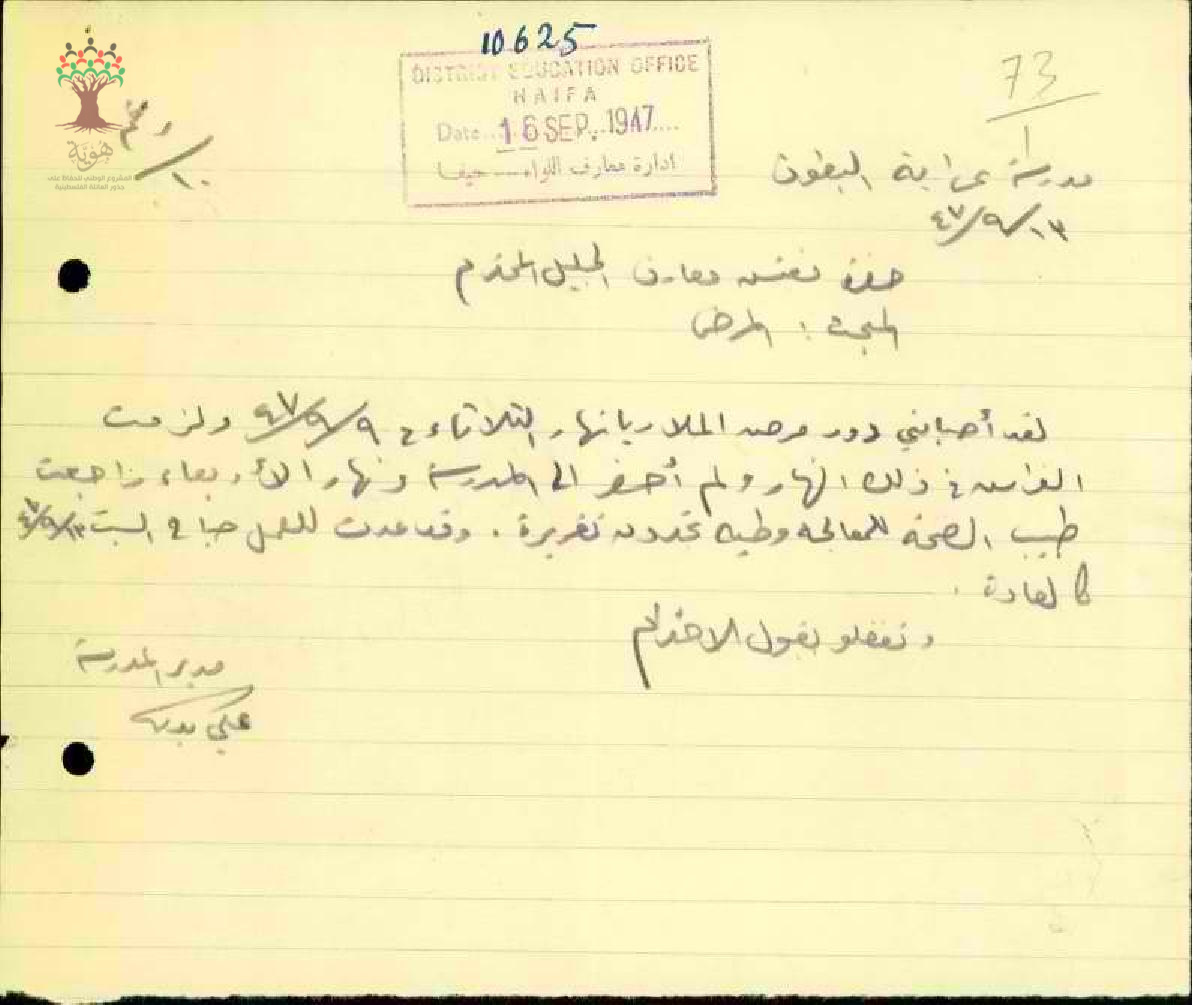 10625
DISTRICT EDUCATION OFFICE
HAIFA
Date 16 SEP. 1947
ادارة معارف اللواء حيفا
73
هوية
المشروع الوطني للحفاظ على
جذور العائلة الفلسطينية
مدرسة عرابة البطوف
١٣/٩/٤٧
حضرة مفتش معارف الجليل المحترم
المبحث : المرض
لقد أصابني دور مرض الملاريا نهار الثلاثاء في ٩/٩/٤٧ ولزمت
الفراش في ذلك النهار ولم أحضر الى المدرسة ونهار الأربعاء راجعت
طبيب الصحة للمعالجة وطيه تجدون تقريره . وقد عدت للعمل صباح السبت ١٣/٩/٤٧
كالعادة .
وتفضلو بقبول الاحترام
مدير المدرسة
علي